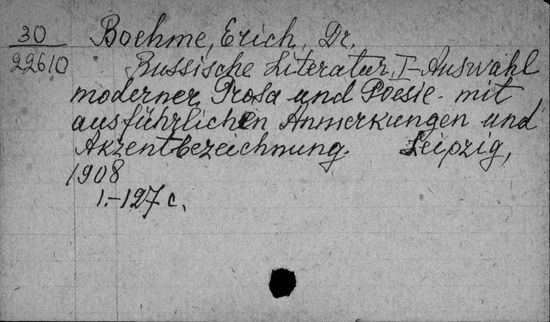 30
22610
Boehme, Erich, Dr.
Russische Literatur, I-Auswahl
moderner Prosa und Poesie. mit
ausführlichen Anmerkungen und
Akzentbezeichnung. Leipzig,
1908
1.-127 c.